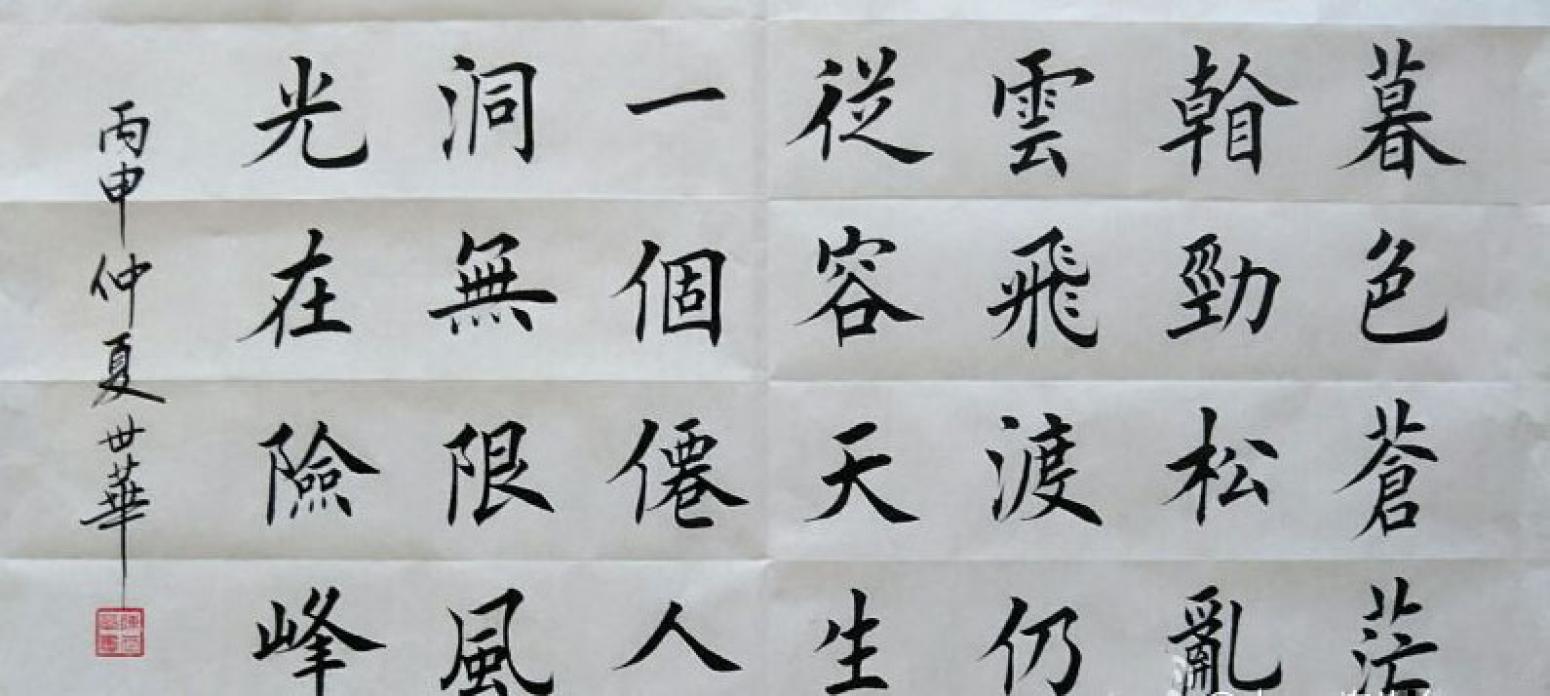 暮色蒼茫
看勁松亂
雲飛渡仍
從容天生
一個僊人
洞無限風
光在險峰
丙申仲夏世華